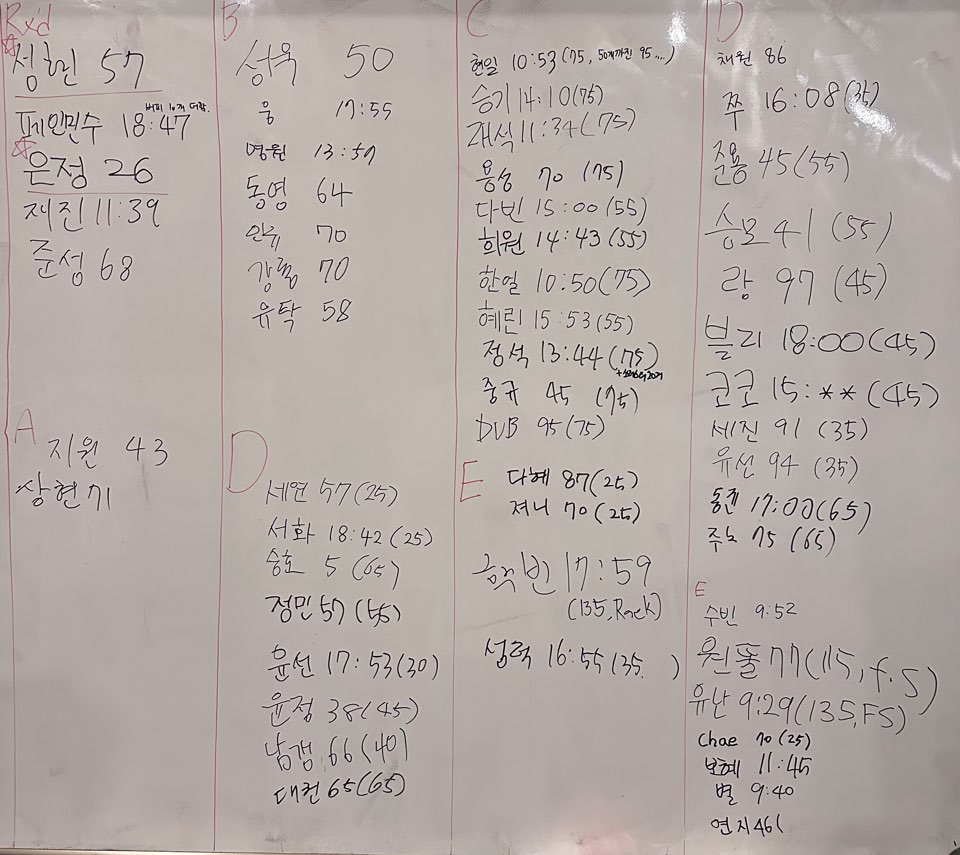 Rx'd
정현 57
버피 10개 더함.
페인민수 18:47
은정 26
재진 11:39
준성 68
A
지원 43
상현 71
B
성욱 50
웅 17:55
명원 13:59
동영 64
70
강림 70
유탁 58
D
세연 57(25)
서화 18:42(25)
승호 5 (65)
정민 57 (55)
윤선 17:53(30)
윤정 38(45)
남갭 66(40)
대건 65(65)
C
현일 10:53(75, 50개까진 95....)
승기 14:10(75)
재석 11:34(75)
용성 70 (75)
다빈 15:00(55)
희원 14:43(55)
한일 10:50(75)
혜린 15:53(55)
정석 13:44(75)
중규 45 (75)
DVB 95(75)
E
다혜 87(25)
져니 70(25)
빈 17:59
(135, Rack)
섭력 16:55(35 )
D
채원 86
쭈 16:08(35)
준용 45(55)
승모 41 (55)
랑 97 (45)
블리 18:00(45)
코코 15:**(45)
세진 91 (35)
유선 94 (35)
동진 17:00(65)
주노 75 (65)
E
수빈 9:52
윈똘 77(115, f.s)
유난 9:29(135,FS)
Chae 70(25)
보혜 11:45
별 9:40
연지 46(